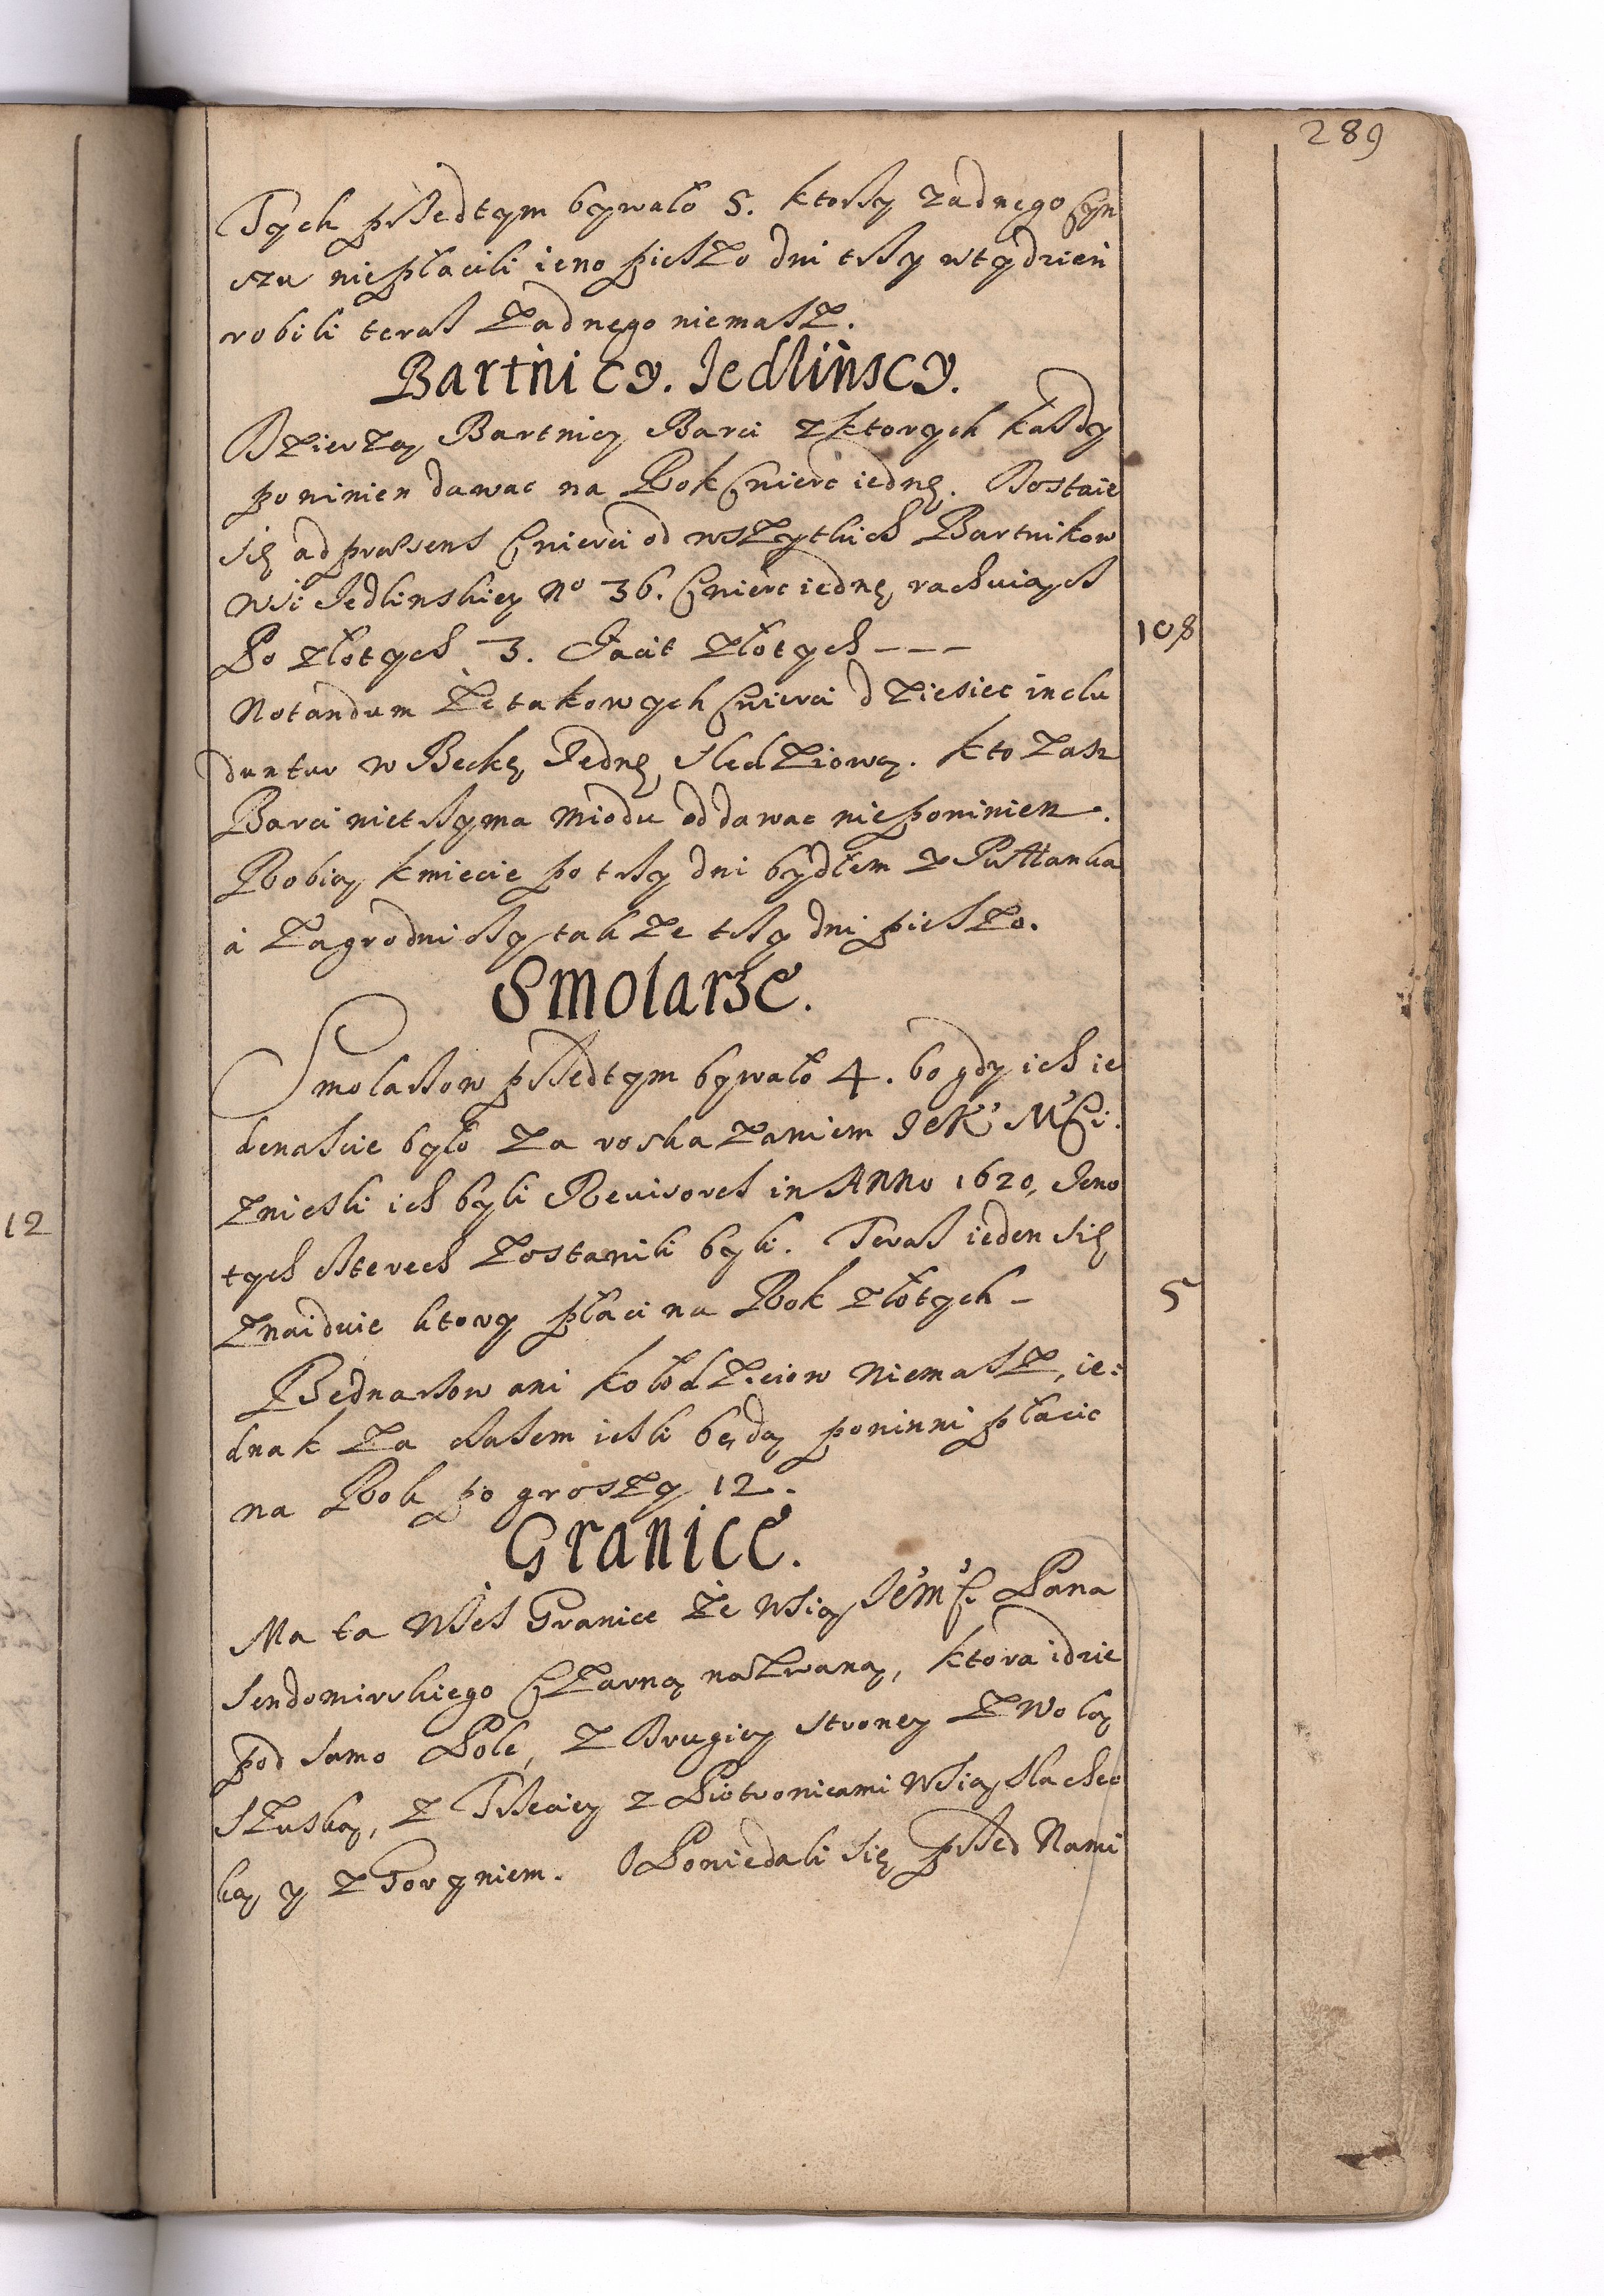 289
Tych przedtym bywało 5. ktorzy zadnego Czyn
szu niepłacili ieno pieszo dni trzy wtydzień
robili teras zadnego niemasz.
Bartnicy. Jedlińscy.
Dzierzą Bartnicy Barci zktorych kazdy
powinien dawac na Rok Cwierc iednę. Dostaie
się ad præsens Cwierci od wszytkich Bartnikow
wsi Jedlinskiey No 36. Cwierc iednę rachuiącz
Po złotych 3. Facit złotych - - - 108
Notandum ze takowych Cwierci dziesiec inclu
duntur w Beckę Jednę sledziową. kto zasz
Barci nietrzyma Miodu oddawac niepowinien.
Robią kmiecie po trzy dni bydłem z Pułłanka
à zagrodniczy takze trzy dni pieszo.
Smolarze.
Smolarzow przedtym bywało 4. bo gdy ich ie
denascie było za roskazaniem JeK Mści:
zniesli ich byli Reuisores in Anno 1620, Jeno
tych czterech zostawili byli. Teras ieden się
znaiduie ktory płaci na Rok złotych - 5
Bednarzow ani kołodzieiow niemasz, ie:
dnak za czasem iesli będą powinni płacic
na Rok po groszy 12.
Granice.
Ma ta wies Granice ze wsią JeMści Pana
Sendomirskiego Czarną nazwaną, ktora idzie
pod samo Pole, z Drugiey strony z wolą
szuską, z Trzeciey z Piotrowicami wsią slachec
ką y z Goryniem. Opowiedali się przed Nami
12